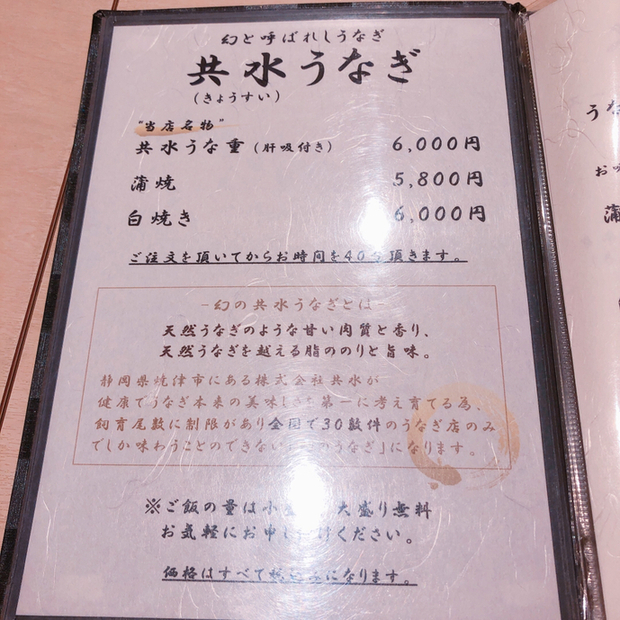 幻と呼ばれしうなぎ
共水うなぎ
(きょうすい)
"当店名物"
共水うな重(肝吸付き) 6,000円
蒲焼 5,800円
白焼き 6,000円
ご注文を頂いてからお時間を40分頂きます。
－幻の共水うなぎとは－
天然うなぎのような甘い肉質と香り、
天然うなぎを越える脂ののりと旨味。
静岡県焼津市にある株式会社共水が
健康でうなぎ本来の美味しさを第一に考え育てる為、
飼育尾数に制限があり全国で30数件のうなぎ店のみ
でしか味わうことのできない のうなぎ」になります。
※ご飯の量は小 大盛り無料
お気軽にお申し けください。
価格はすべて になります。
うな
お
蒲